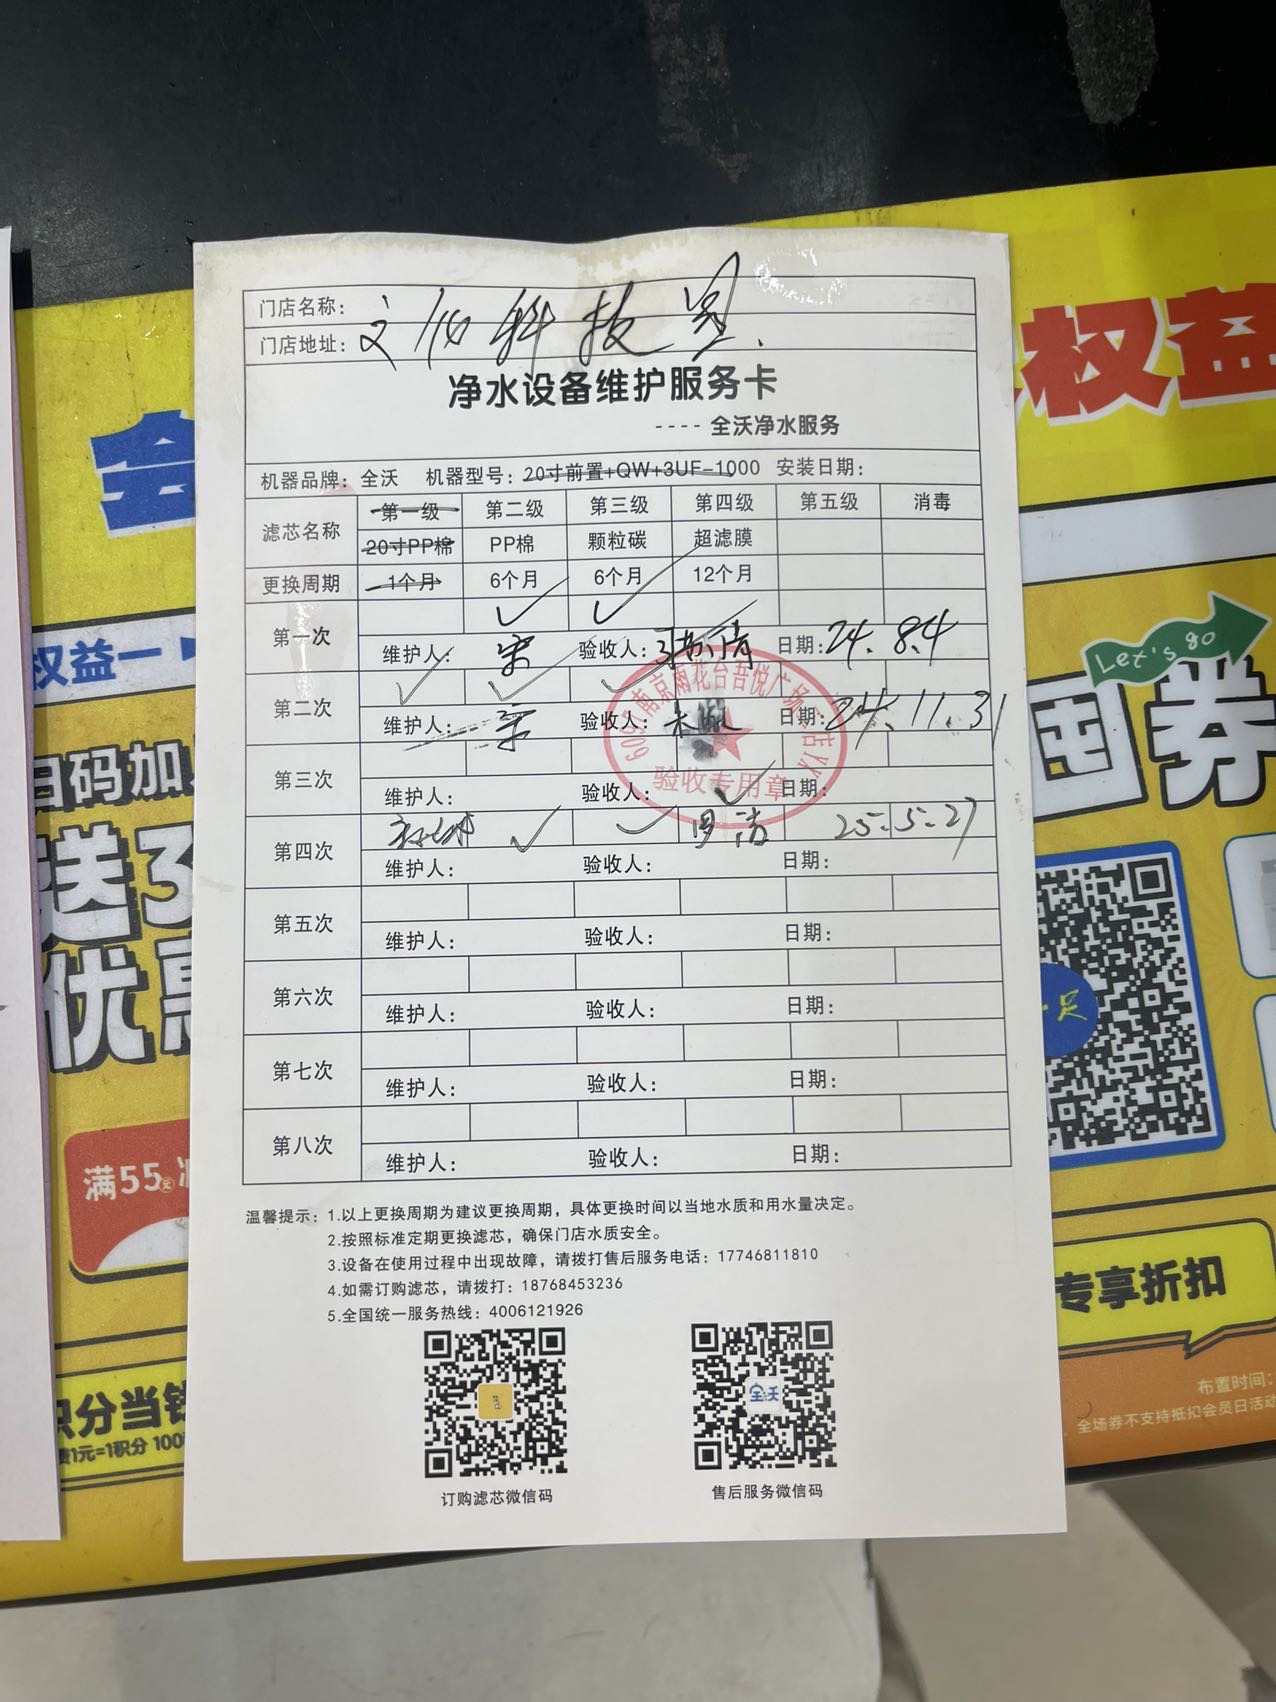 门店名称：
门店地址：
净水设备维护服务卡
---- 全沃净水服务
机器品牌：全沃 机器型号：20寸前置+QW+3UF-1000 安装日期：
滤芯名称 第一级 第二级 第三级 第四级 第五级 消毒
20寸PP棉 PP棉 颗粒碳 超滤膜
更换周期 1个月 6个月 6个月 12个月
第一次
维护人： 宋 验收人： 日期：24.8.4
第二次
维护人： 宋 验收人： 日期：24.11.31
南京雨花台吾悦广场
验收专用章
第三次
维护人： 验收人： 日期：
第四次
25.5.27
维护人： 验收人： 日期：
第五次
维护人： 验收人： 日期：
第六次
维护人： 验收人： 日期：
第七次
维护人： 验收人： 日期：
第八次
维护人： 验收人： 日期：
温馨提示：1.以上更换周期为建议更换周期，具体更换时间以当地水质和用水量决定。
2.按照标准定期更换滤芯，确保门店水质安全。
3.设备在使用过程中出现故障，请拨打售后服务电话：17746811810
4.如需订购滤芯，请拨打：18768453236
5.全国统一服务热线：4006121926
全沃
订购滤芯微信码
售后服务微信码
权益
权益一
Let's go
券
扫码加
送3
优惠
满55元
专享折扣
积分当钱
费1元=1积分 100
布置时间：
全场券不支持抵扣会员日活动